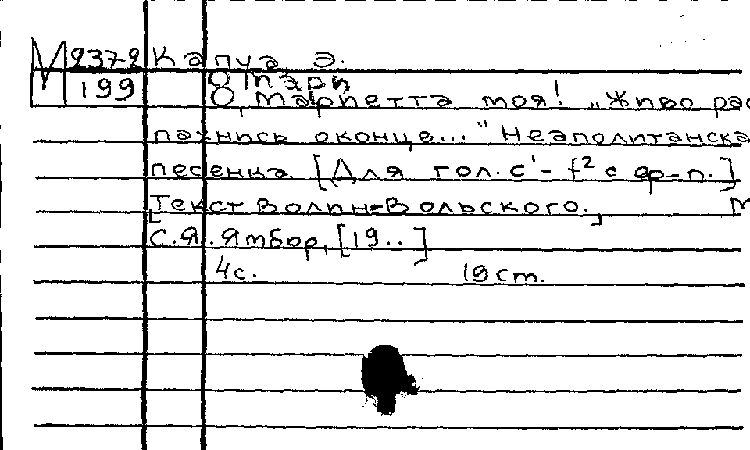 М 2372 Капуа Э.
199 О Мари
О, Мариетта моя! „Живо рас
пахнись оконце..." Неаполитанска
песенка [Для гол. c¹-f² с ф-п.]
[Текст Волин-Вольского.] М
С.Я. Ямбор, [19..]
4с. 19 ст.